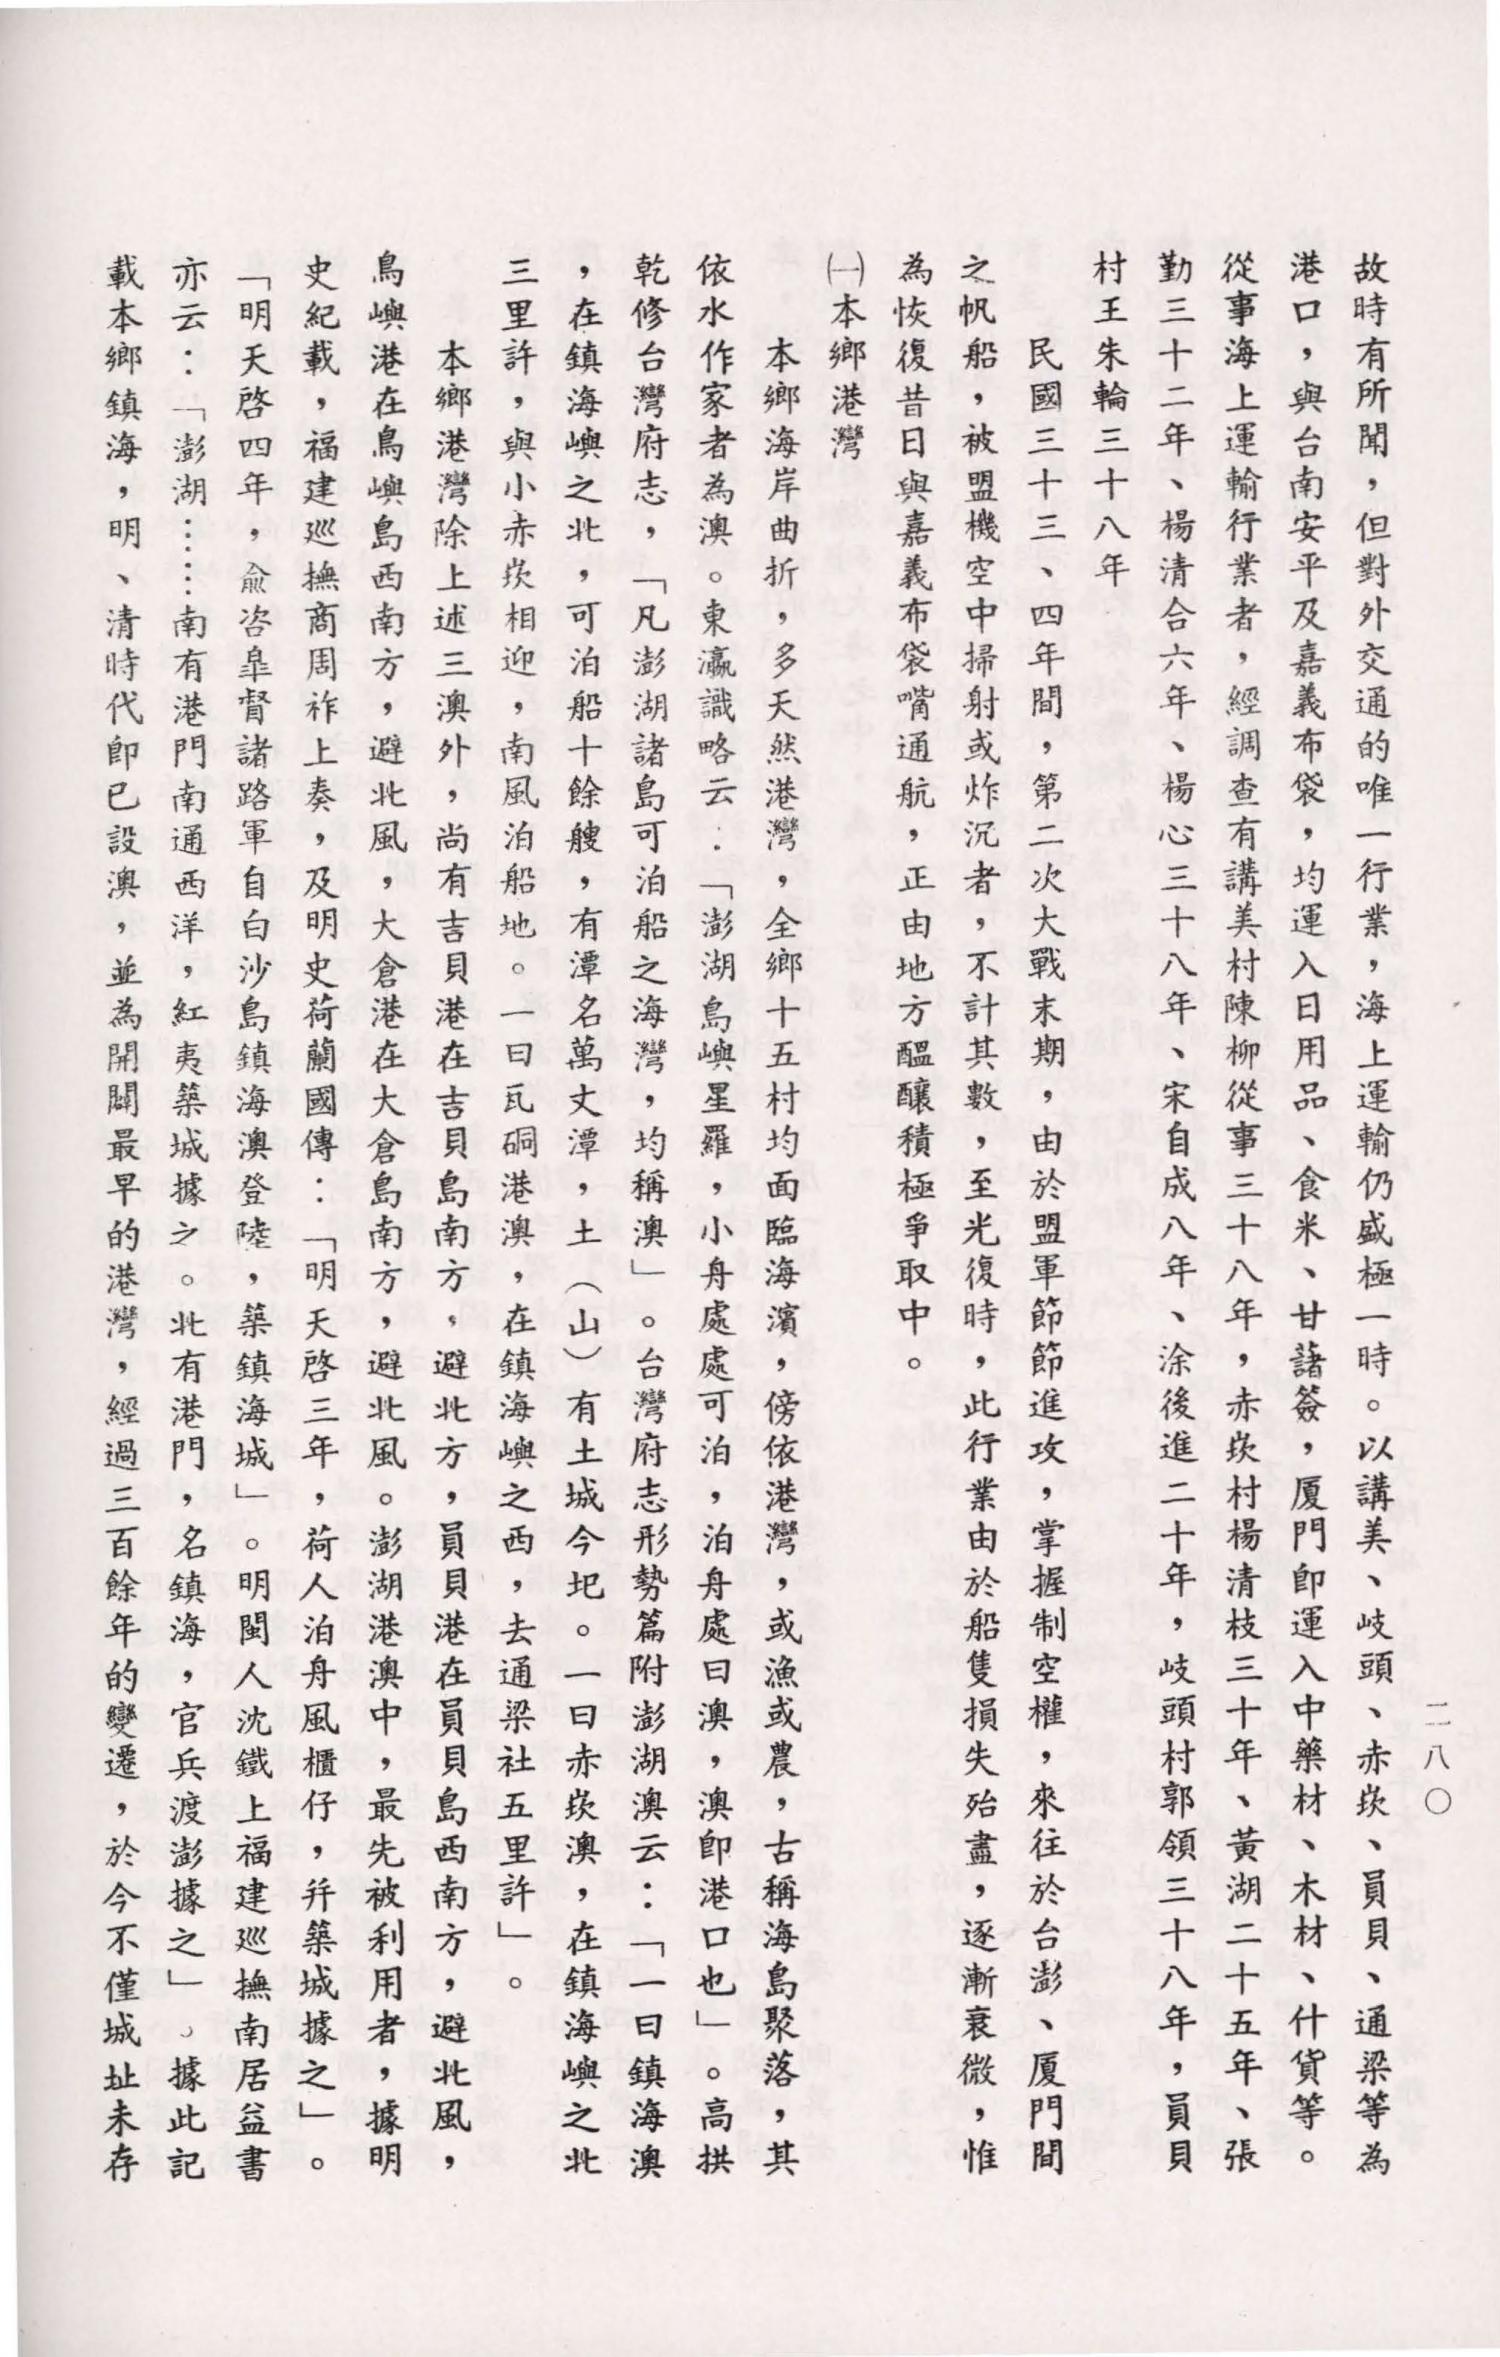 二八〇
故時有所聞，但對外交通的唯一行業，海上運輸仍盛極一時。以講美、岐頭、赤崁、員貝、通梁等為
港口，與台南安平及嘉義布袋，均運入日用品、食米、甘藷簽，厦門即運入中藥材、木材、什貨等。
從事海上運輸行業者，經調查有講美村陳柳從事三十八年，赤崁村楊清枝三十年、黃湖二十五年、張
勤三十二年、楊清合六年、楊心三十八年、宋自成八年、涂後進二十年，岐頭村郭領三十八年，員貝
村王朱輪三十八年
民國三十三、四年間，第二次大戰末期，由於盟軍節節進攻，掌握制空權，來往於台澎、厦門間
之帆船，被盟機空中掃射或炸沉者，不計其數，至光復時，此行業由於船隻損失殆盡，逐漸衰微，惟
為恢復昔日與嘉義布袋嘴通航，正由地方醞釀積極爭取中。
㈠本鄉港灣
本鄉海岸曲折，多天然港灣，全鄉十五村均面臨海濱，傍依港灣，或漁或農，古稱海島聚落，其
依水作家者為澳。東瀛識略云：「澎湖島嶼星羅，小舟處處可泊，泊舟處曰澳，澳即港口也」。高拱
乾修台灣府志，「凡澎湖諸島可泊船之海灣，均稱澳」。台灣府志形勢篇附澎湖澳云：「一曰鎮海澳
，在鎮海嶼之北，可泊船十餘艘，有潭名萬丈潭，土（山）有土城今圯。一曰赤崁澳，在鎮海嶼之北
三里許，與小赤崁相迎，南風泊船地。一曰瓦硐港澳，在鎮海嶼之西，去通梁社五里許」。
本鄉港灣除上述三澳外，尚有吉貝港在吉貝島南方，避北方，員貝港在員貝島西南方，避北風，
鳥嶼港在鳥嶼島西南方，避北風，大倉港在大倉島南方，避北風。澎湖港澳中，最先被利用者，據明
史紀載，福建巡撫商周祚上奏，及明史荷蘭國傳：「明天啓三年，荷人泊舟風櫃仔，幷築城據之」。
「明天啓四年，俞咨皐督諸路軍自白沙島鎮海澳登陸，築鎮海城」。明閩人沈鐵上福建巡撫南居益書
亦云：「澎湖……南有港門南通西洋，紅夷築城據之。北有港門，名鎮海，官兵渡澎據之」。據此記
載本鄉鎮海，明、清時代即已設澳，並為開闢最早的港灣，經過三百餘年的變遷，於今不僅城址未存